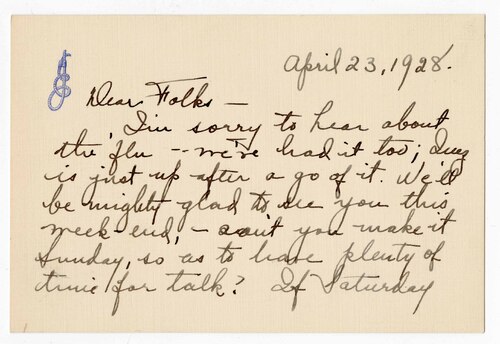 April 23, 1928.
Dear Folks —
I'm sorry to hear about
the flu -- we've had it too;
is just up after a go of it. We'll
be mighty glad to see you this
week-end, - can't you make it
Sunday, so as to have plenty of
time for talk? If Saturday